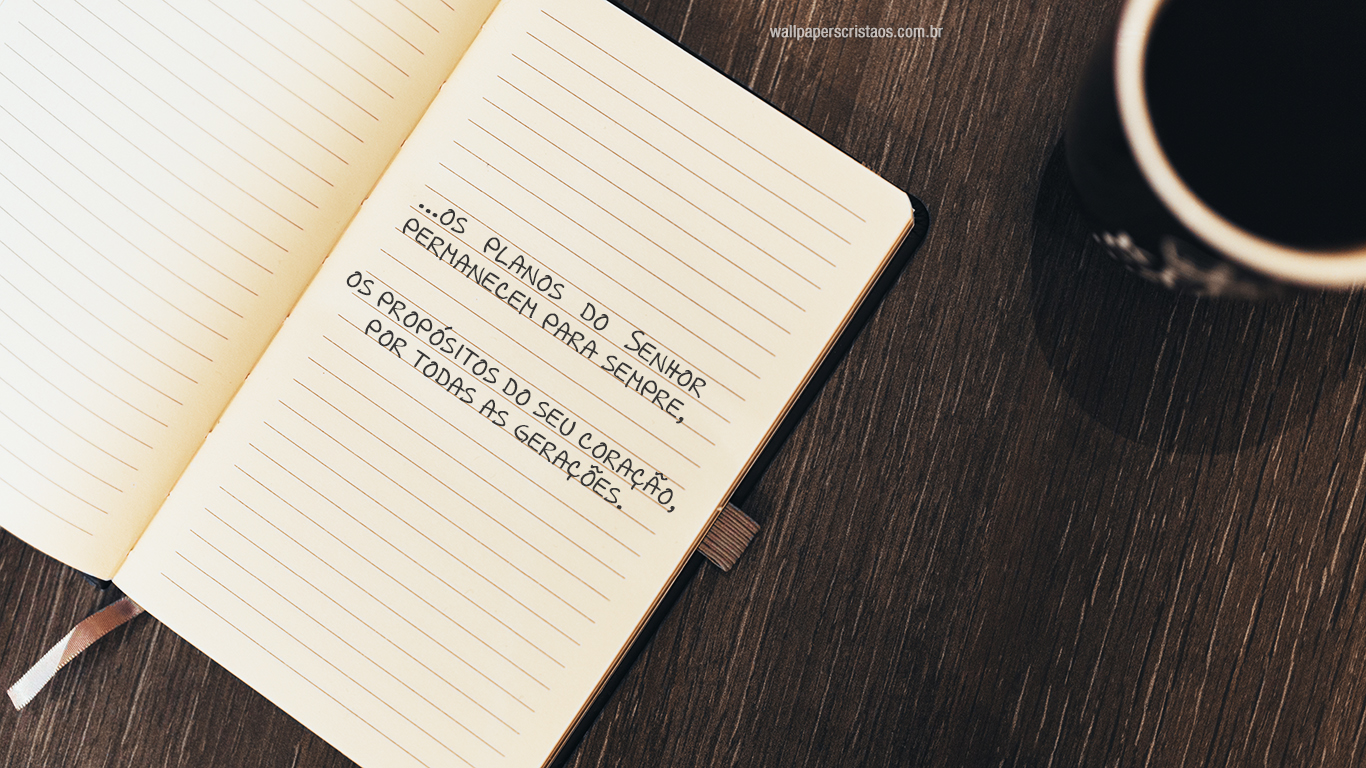 wallpaperscristaos.com.br
...OS PLANOS DO SENHOR
PERMANECEM PARA SEMPRE,
OS PROPÓSITOS DO SEU CORAÇÃO,
POR TODAS AS GERAÇÕES.